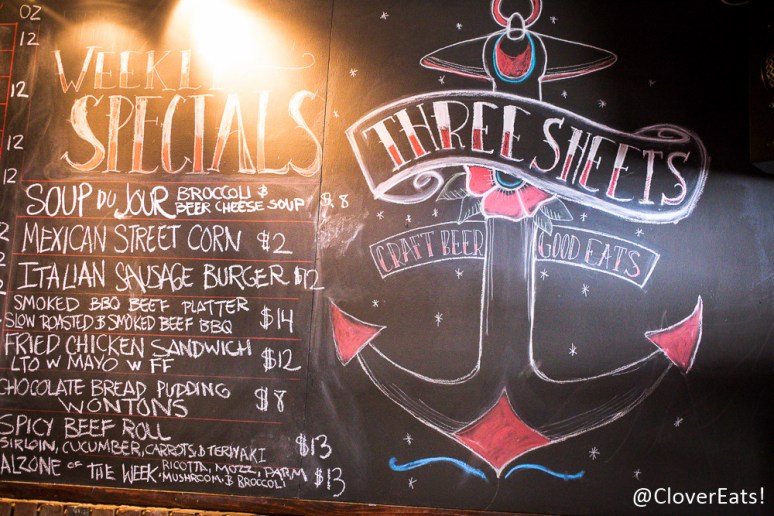 OZ
12
12
12
12
WEEKLY
SPECIALS
SOUP DU JOUR BROCCOLI & BEER CHEESE SOUP $.8
MEXICAN STREET CORN $2
ITALIAN SAUSAGE BURGER $12
SMOKED BBQ BEEF PLATTER
SLOW ROASTED & SMOKED BEEF BBQ $14
FRIED CHICKEN SANDWICH
LTO W MAYO W FF $12
CHOCOLATE BREAD PUDDING
WONTONS $8
SPICY BEEF ROLL
SIRLOIN, CUCUMBER, CARROTS, & TERIYAKI $13
ALZONE OF THE WEEK - RICOTTA, MOZZ, PARM
MUSHROOM & BROCCOLI $13
THREE SHEETS
CRAFT BEER GOOD EATS
@CloverEats!